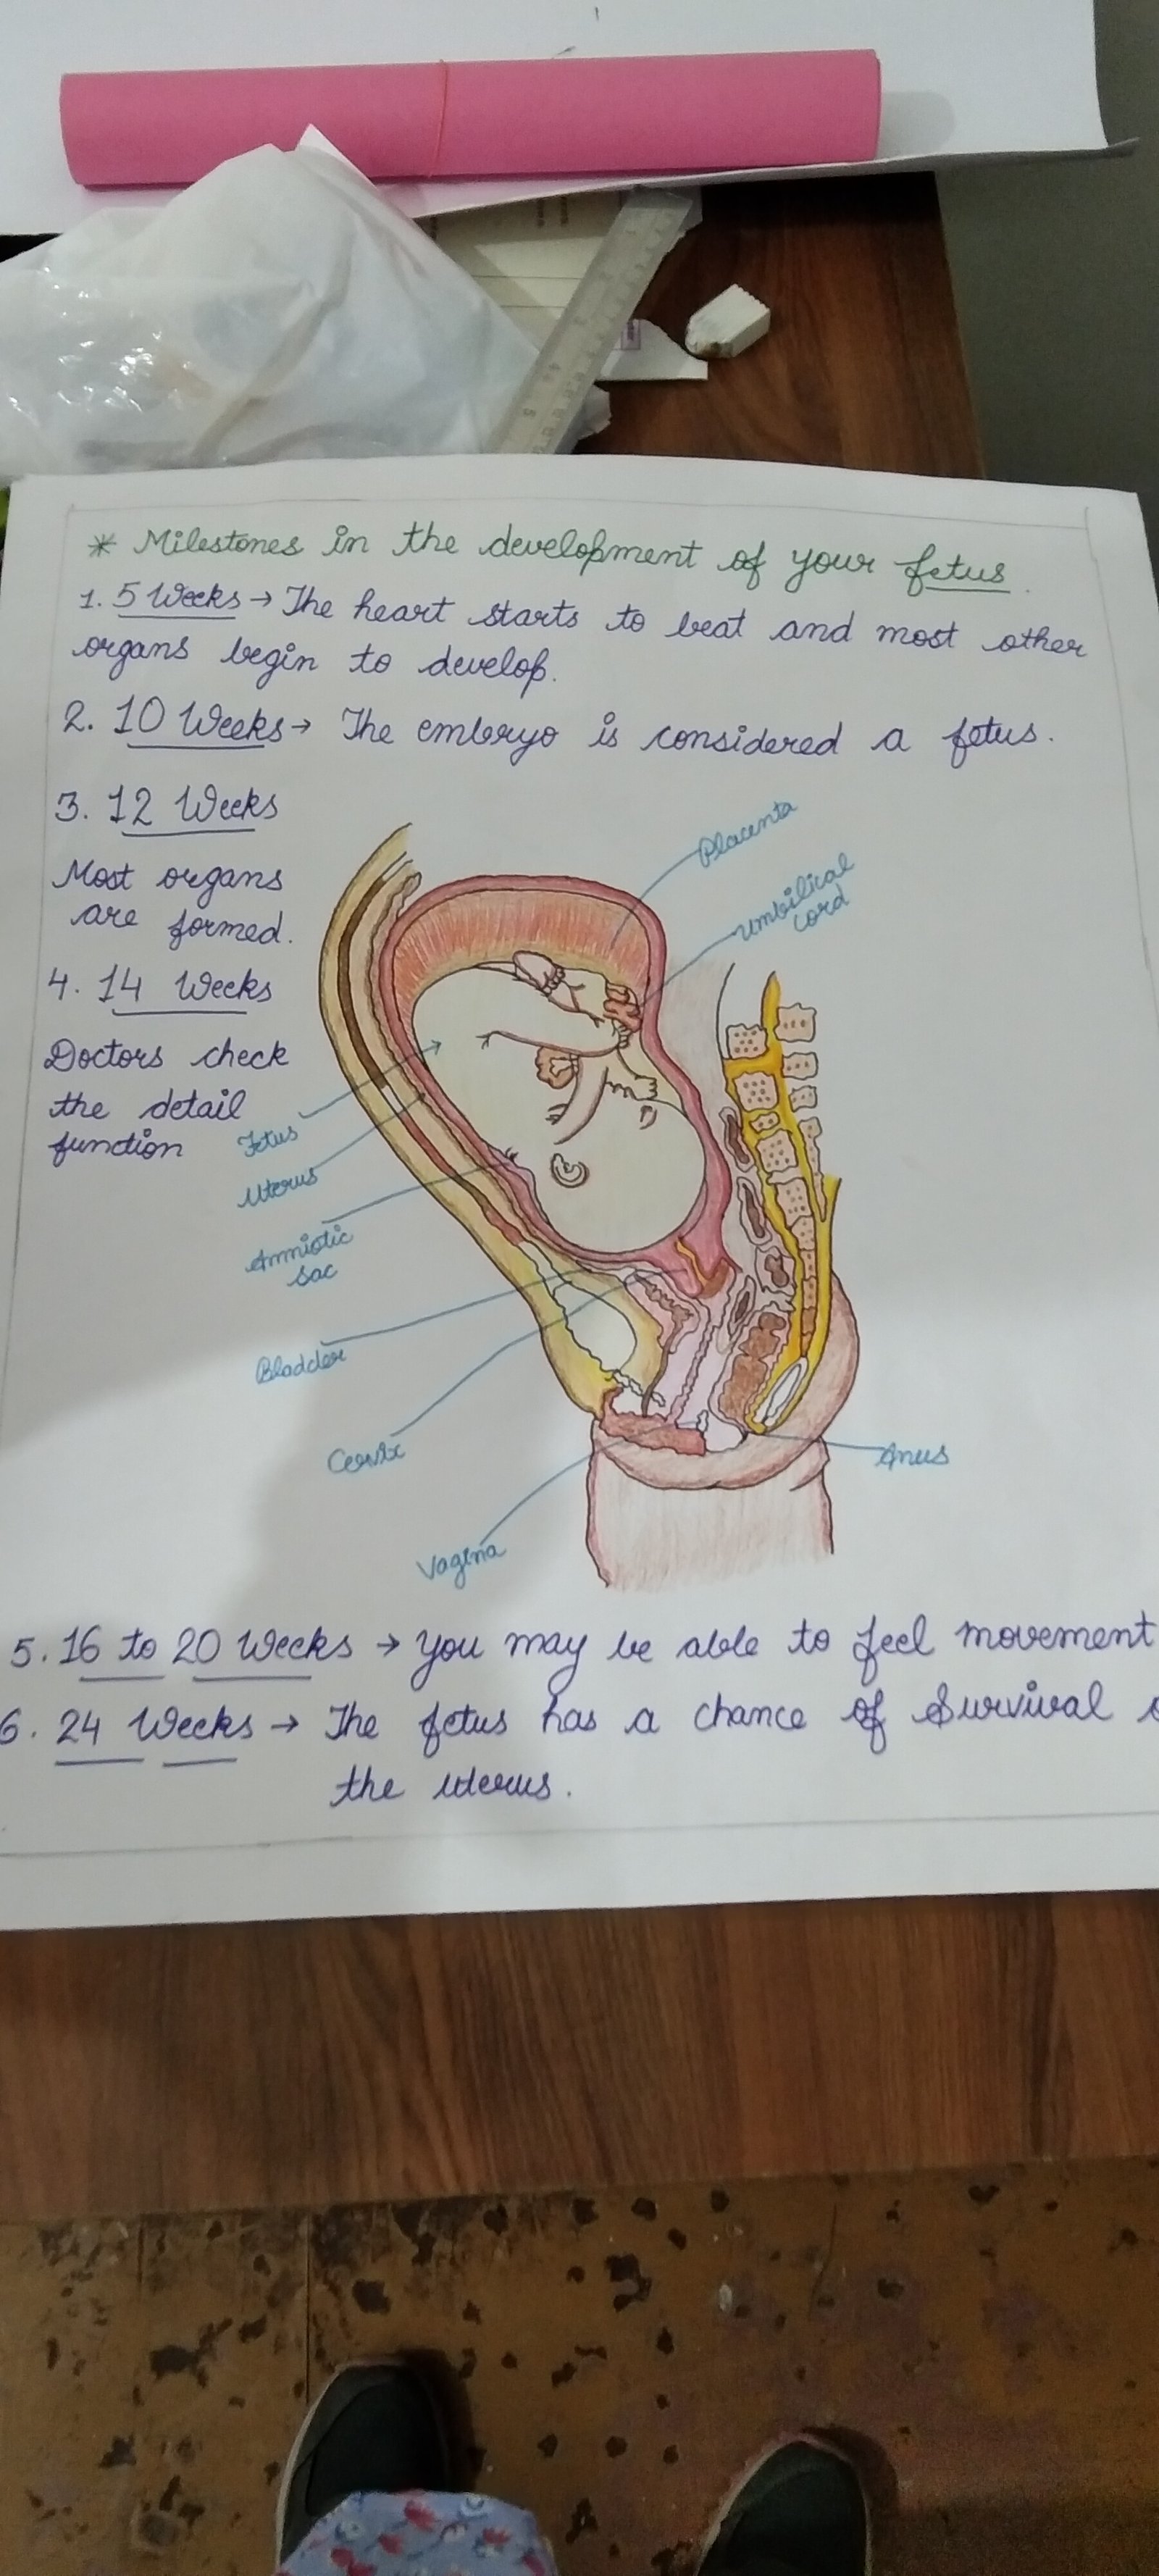 * Milestones in the development of your fetus.
1. 5 Weeks → The heart starts to beat and most other
organs begin to develop.
2. 10 Weeks → The embryo is considered a fetus.
3. 12 Weeks
Most organs
are formed.
4. 14 Weeks
Doctors check
the detail
function
Placenta
umbilical
cord
Fetus
Uterus
Amniotic
sac
Bladder
Cervix
Vagina
Anus
5. 16 to 20 Weeks → you may be able to feel movement
6. 24 Weeks → The fetus has a chance of Survival
the uterus.